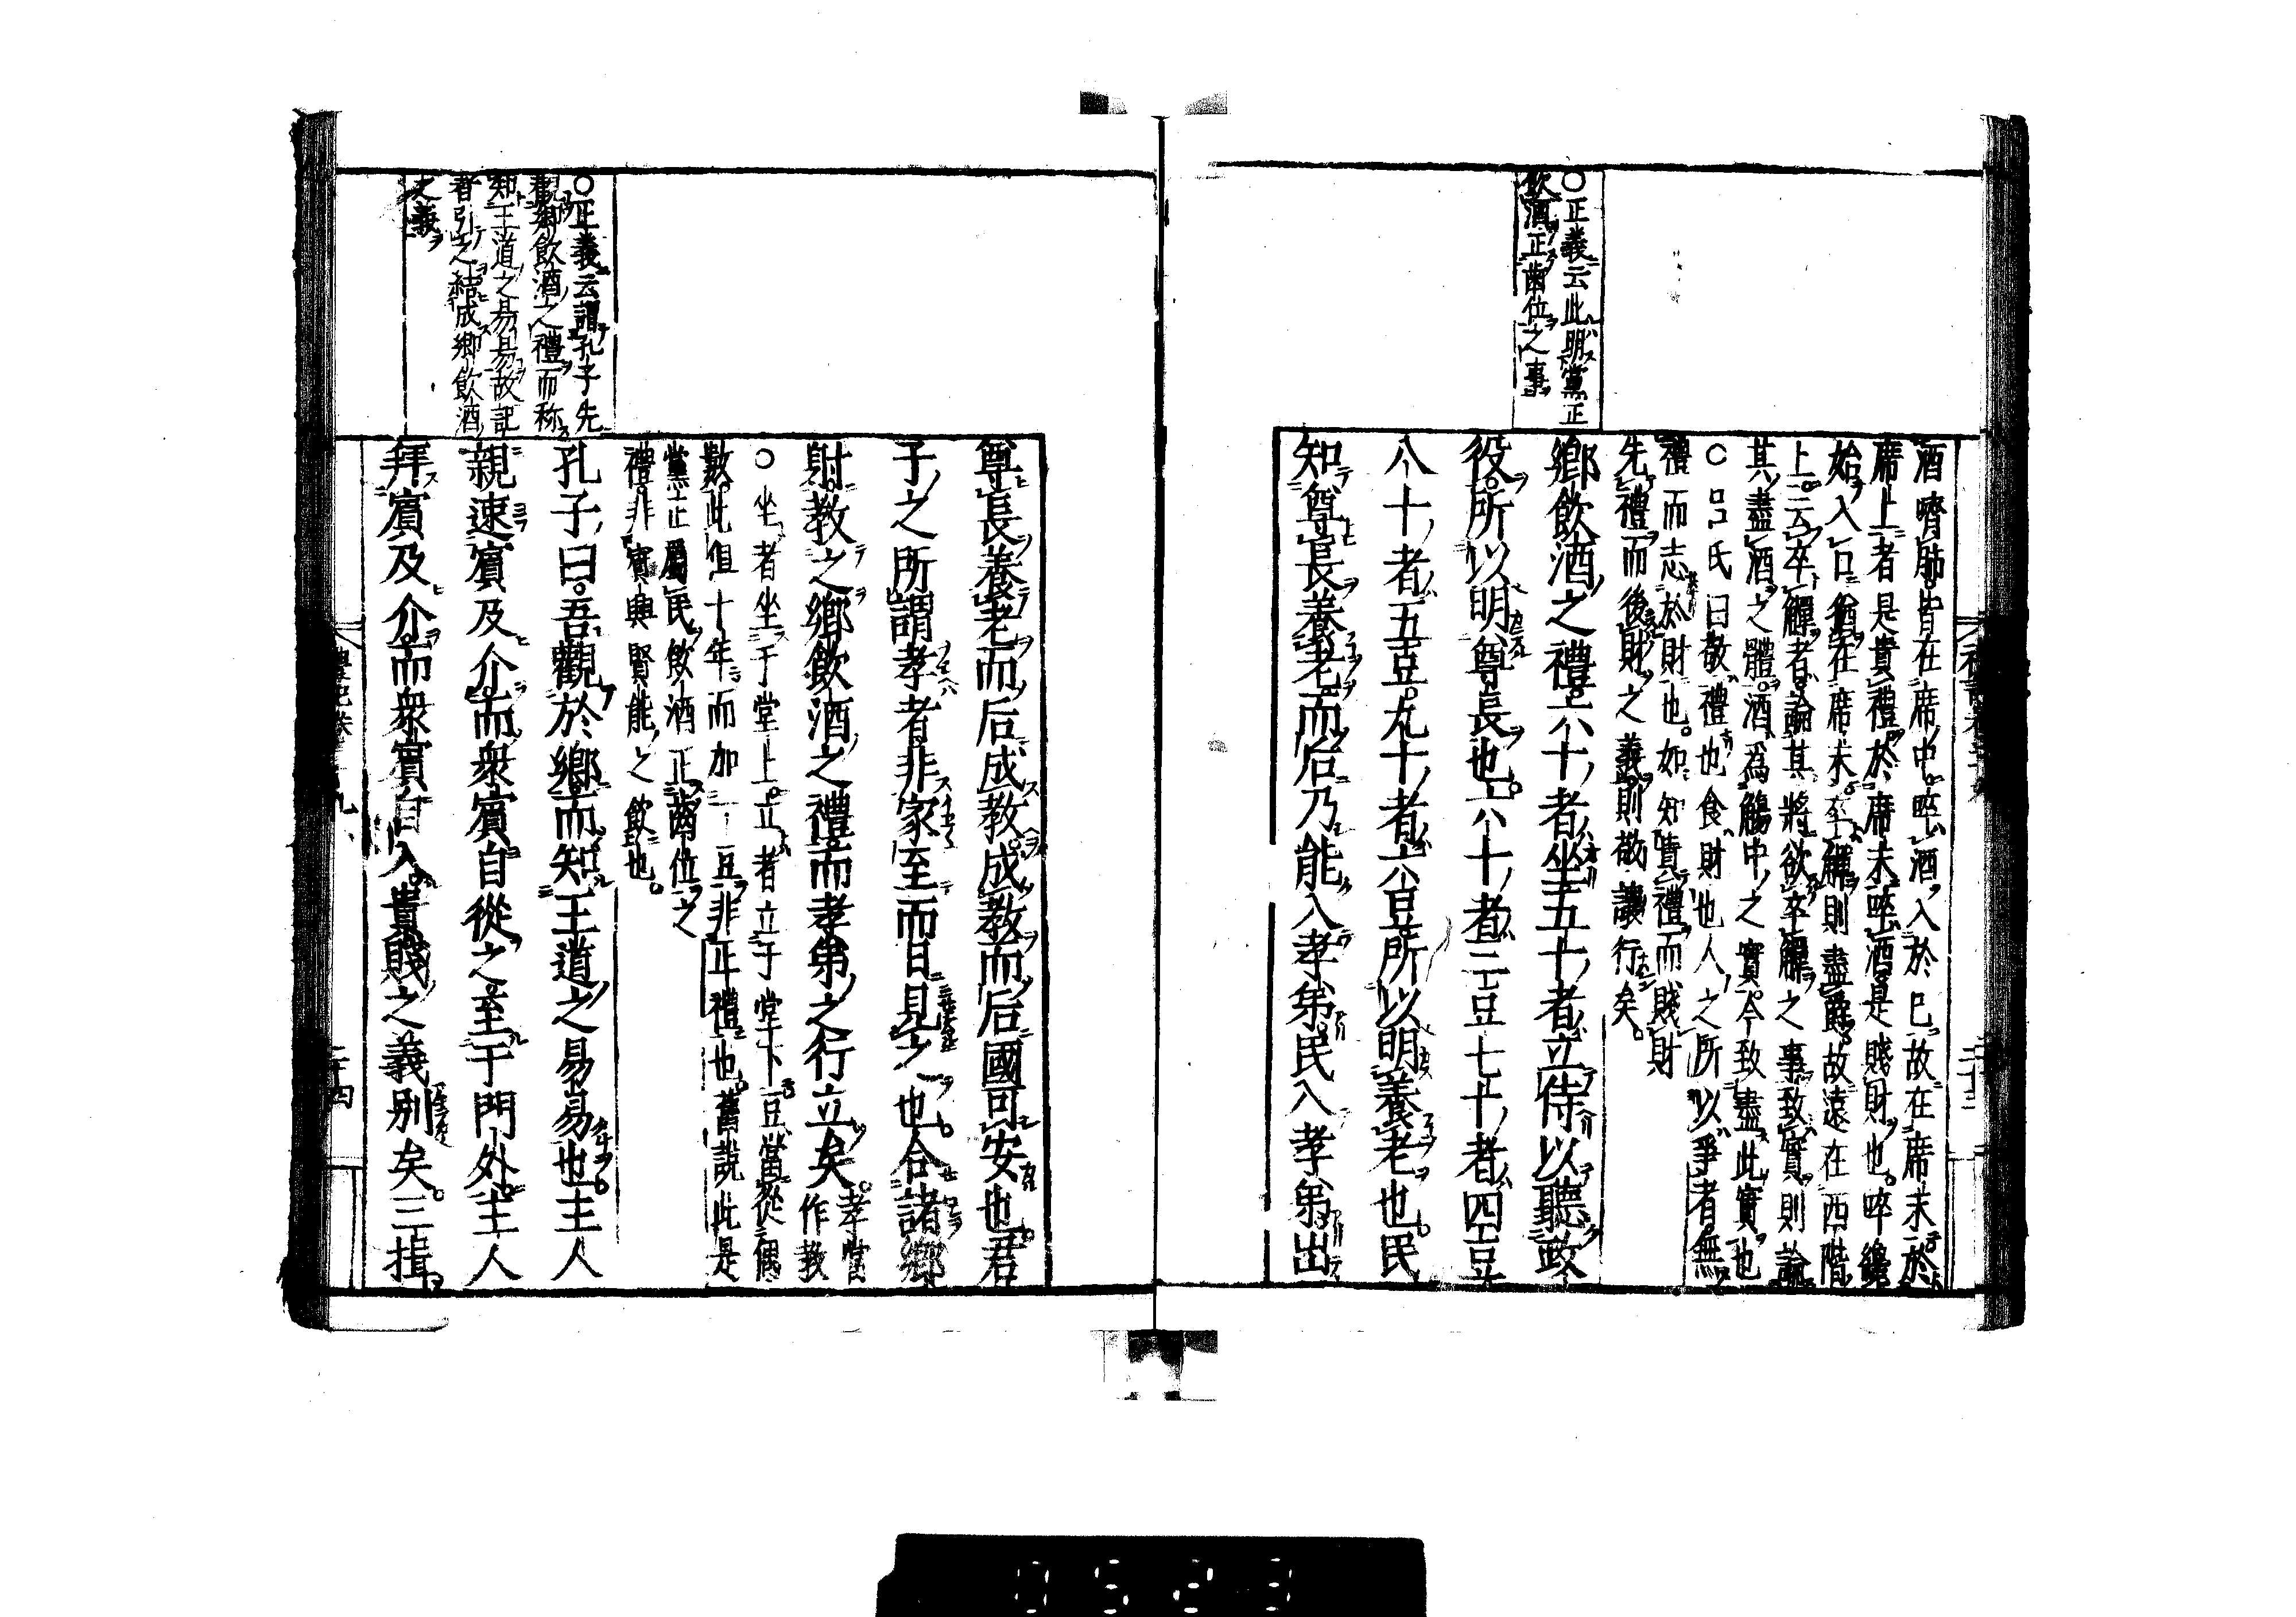 酒嚌肺皆在席中啐酒入於已故在席末於
席上者是貴禮於席末啐酒是賤財也啐纔
始入口猶在席末卒觶則盡爵故遠在西階
上云卒觶者論其將欲卒觶之事致實則論
其盡酒之體酒爲觴中之實今致盡此實也
○呂氏曰敬禮也食財也人之所以爭者無
禮而志於財也如知貴禮而賤財
先禮而後財之義則敬讓行矣
○正義云此明黨正
飲酒正齒位之事
鄉飲酒之禮六十者坐五十者立侍以聽政
役所以明尊長也六十者三豆七十者四豆
八十者五豆九十者六豆所以明養老也民
知尊長養老而后乃能入孝弟民入孝弟出
尊長養老而后成教成教而后國可安也君
子之所謂孝者非家至而日見之也合諸鄉
射教之鄉飲酒之禮而孝弟之行立矣孝當
作教
○坐者坐于堂上立者立于堂下豆當從偶
數此但十年而加一豆非正禮也舊說此是
黨正屬民飲酒正齒位之
禮非賓興賢能之飲也
○正義云謂孔子先
觀鄉飲酒之禮而称
知王道之易易故記
者引之結成鄉飲酒
之義
孔子曰吾觀於鄉而知王道之易易也主人
親速賓及介而衆賓自從之至于門外主人
拜賓及介而衆賓自入貴賤之義別矣三揖
禮記卷 九
二十四
0523